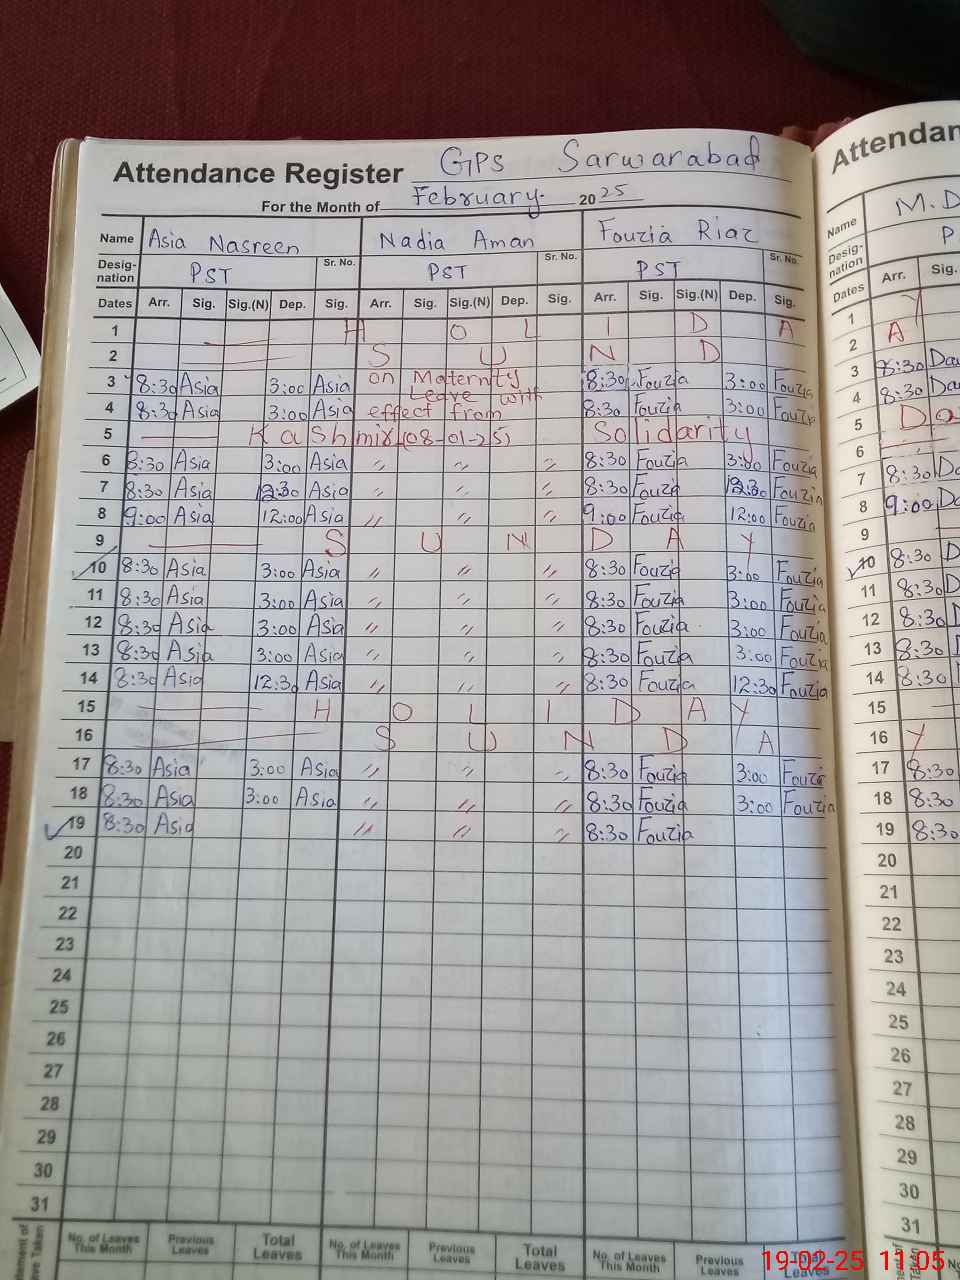 Attendance Register GPS Sarwarabad
Attendan
For the Month of February. 2025
Name Asia Nasreen Nadia Aman Fouzia Riaz
Name M. D
Desig-nation PST Sr. No. PST Sr. No. PST Sr. No.
Desig-nation P
Dates Arr. Sig. Sig.(N) Dep. Sig. Arr. Sig. Sig.(N) Dep. Sig. Arr. Sig. Sig.(N) Dep. Sig.
Dates Arr. Sig.
1 H O L I D A
1 Y
2 S U N D
2 A
3 8:30 Asia 3:00 Asia on Maternity 8:30 Fouzia 3:00 Fouzia
3 8:30
Leave with
4 8:30 Asia 3:00 Asia effect from 8:30 Fouzia 3:00 Fouzia
4 8:30
5 Kashmir (08-01-25) Solidarity
5
6 8:30 Asia 3:00 Asia " " " 8:30 Fouzia 3:00 Fouzia
6
7 8:30 Asia 12:30 Asia " " " 8:30 Fouzia 12:30 Fouzia
7 8:30
8 9:00 Asia 12:00 Asia " " " 9:00 Fouzia 12:00 Fouzia
8 9:00
9 S U N D A Y
9
10 8:30 Asia 3:00 Asia " " " 8:30 Fouzia 3:00 Fouzia
10 8:30
11 8:30 Asia 3:00 Asia " " " 8:30 Fouzia 3:00 Fouzia
11 8:30
12 8:30 Asia 3:00 Asia " " " 8:30 Fouzia 3:00 Fouzia
12 8:30
13 8:30 Asia 3:00 Asia " " " 8:30 Fouzia 3:00 Fouzia
13 8:30
14 8:30 Asia 12:30 Asia " " " 8:30 Fouzia 12:30 Fouzia
14 8:30
15 H O L I D A Y
15
16 S U N D A
16 Y
17 8:30 Asia 3:00 Asia " " " 8:30 Fouzia 3:00 Fouzia
17 8:30
18 8:30 Asia 3:00 Asia " " " 8:30 Fouzia 3:00 Fouzia
18 8:30
19 8:30 Asia " " " 8:30 Fouzia
19 8:30
20
20
21
21
22
22
23
23
24
24
25
25
26
26
27
27
28
28
29
29
30
30
31
31
No. of Leaves This Month Previous Leaves Total Leaves No. of Leaves This Month Previous Leaves Total Leaves No. of Leaves This Month Previous Leaves Total Leaves
19-02-25 11:05